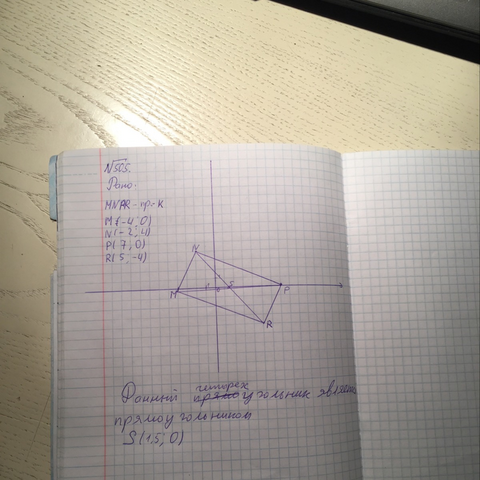 №505.
Дано:
MNPR - пр-к
M(-4; 0)
N(-2; 4)
P(7; 0)
R(5; -4)
N
M
S
P
R
четырех
Данный прямоугольник является
прямоугольником
S(1,5; 0)